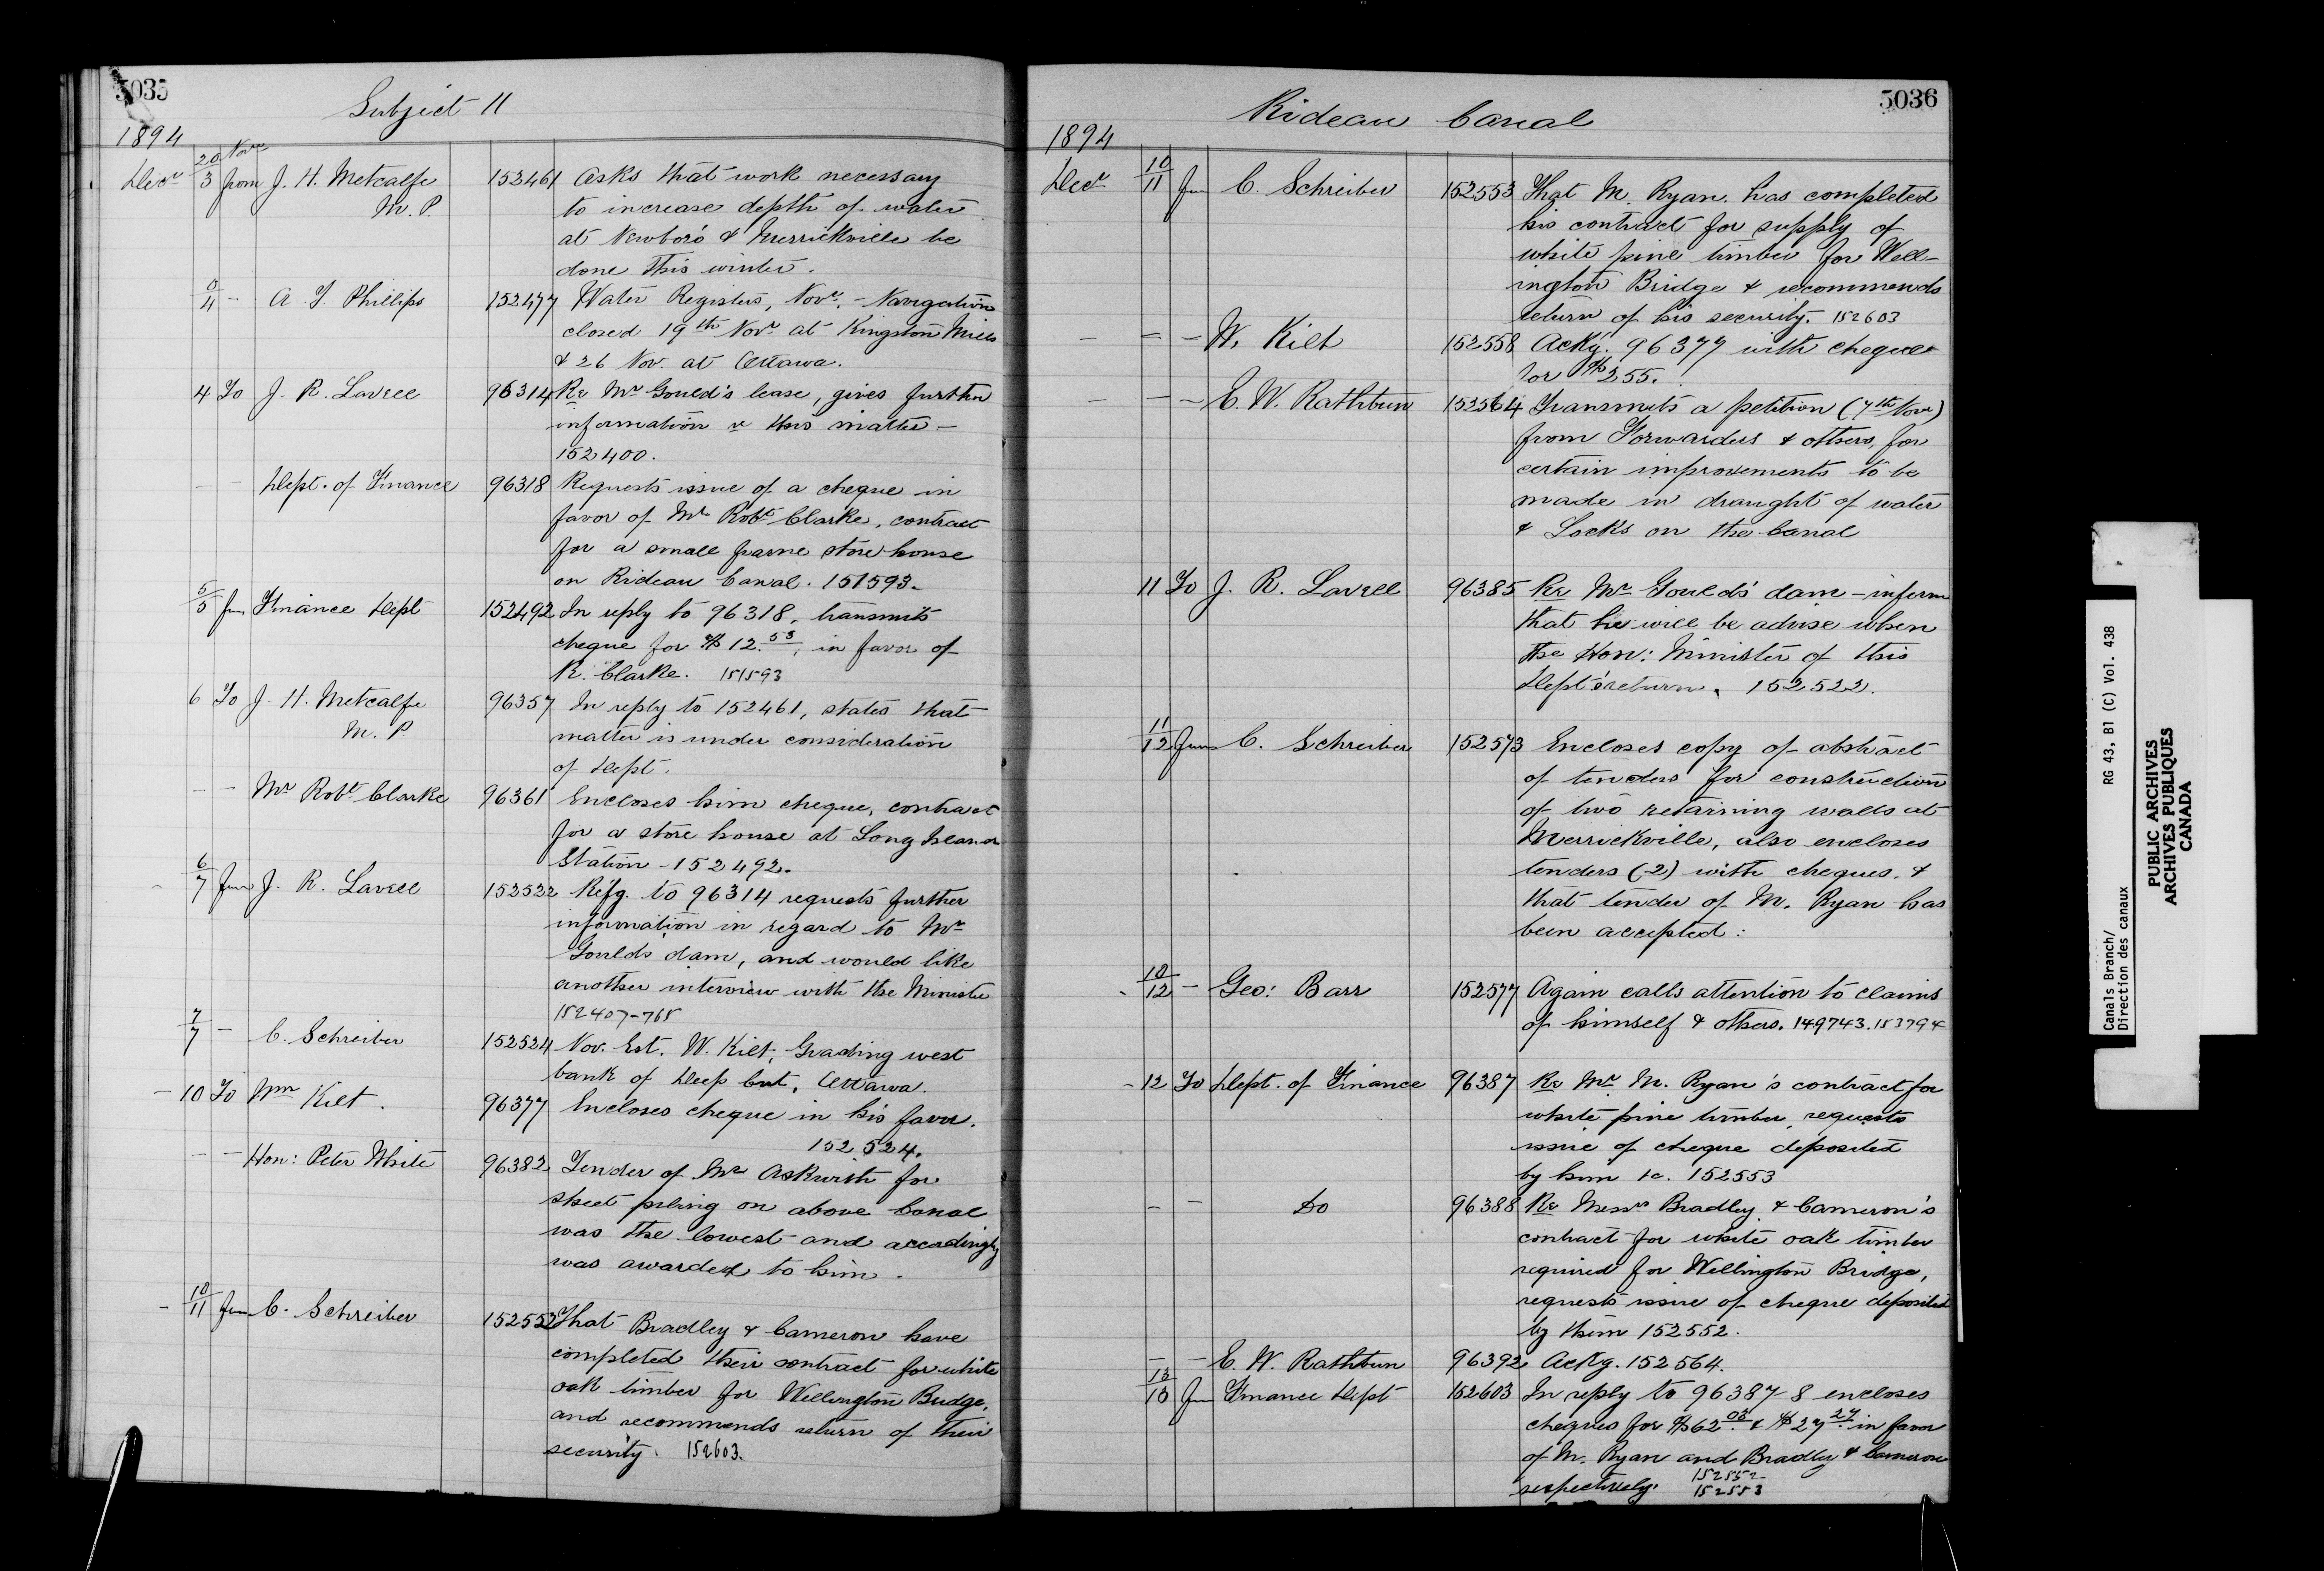 5035
Subject 11
1894
Decr 20 Novr
3 from J. H. Metcalfe 152461 Asks that work necessary
M. P. to increase depth of water
at Newboro & Merrickville be
done this winter.
3/4 - A. T. Phillips 152477 Water Registers, Novr. - Navigation
closed 19th Novr at Kingston Mills
& 26 Nov. at Ottawa.
4 To J. R. Lavell 96314 Re Mr Gould's lease, gives further
information re this matter -
152400.
- - Dept. of Finance 96318 Requests issue of a cheque in
favor of Mr Robt Clarke, contract
for a small frame store house
on Rideau Canal. 151593.
5/5 fm Finance Dept 152492 In reply to 96318, transmits
cheque for $12.53, in favor of
R. Clarke. 151593
6 To J. H. Metcalfe 96357 In reply to 152461, states that
M. P. matter is under consideration
of Dept.
- - Mr Robt Clarke 96361 Encloses him cheque, contract
for a store house at Long Island
Station - 152492.
6/7 from J. R. Lavell 152522 Refg. to 96314 requests further
information in regard to Mr
Goulds dam, and would like
another interview with the Minister
152407-768
7/7 - C. Schreiber 152524 Nov. Est. W. Kilt, Grading west
bank of Deep Cut, Ottawa.
- 10 To Wm Kilt. 96377 Encloses cheque in his favor.
152524.
- - Hon: Peter White 96382 Tender of Mr Askwith for
sheet piling on above Canal
was the lowest and accordingly
was awarded to him.
- 10/11 from C. Schreiber 152552 That Bradley & Cameron have
completed their contract for white
oak timber for Wellington Bridge,
and recommends return of their
security. 152603.
5036
Rideau Canal
1894
Decr 10/11 fm C. Schreiber 152553 That M. Ryan has completed
his contract for supply of
white pine timber for Well-
ington Bridge & recommends
return of his security. 152603
- - - W. Kilt 152558 Ackg. 96377 with cheque
for $255.
- - - E. W. Rathbun 152564 Transmits a petition (7th Novr)
from Forwarders & others, for
certain improvements to be
made in draught of water
& Locks on the Canal
11 To J. R. Lavell 96385 Re Mr Goulds' dam - inform
that he will be advise when
the Hon: Minister of this
Dept's return. 152522.
11/12 from C. Schreiber 152573 Encloses copy of abstract
of tenders for construction
of two retaining walls at
Merrickville, also encloses
tenders (2) with cheques. &
that tender of M. Ryan has
been accepted:
- 10/12 - Geo: Barr 152577 Again calls attention to claims
of himself & others. 149743. 153794
- 12 To Dept. of Finance 96387 Re Mr M. Ryan's contract for
white pine timber, requests
issue of cheque deposited
by him &c. 152553
- - Do 96388 Re Messrs Bradley & Cameron's
contract for white oak timber
required for Wellington Bridge,
requests issue of cheque deposited
by them 152552.
- - E. W. Rathbun 96392 Ackg. 152564.
13/13 fm Finance Dept 152603 In reply to 96387-8 encloses
cheques for $62.03 & $27.27 in favor
of M. Ryan and Bradley & Cameron
respectively. 152552
152553
Canals Branch/
Direction des canaux
RG 43, B1 (C) Vol. 438
PUBLIC ARCHIVES
ARCHIVES PUBLIQUES
CANADA